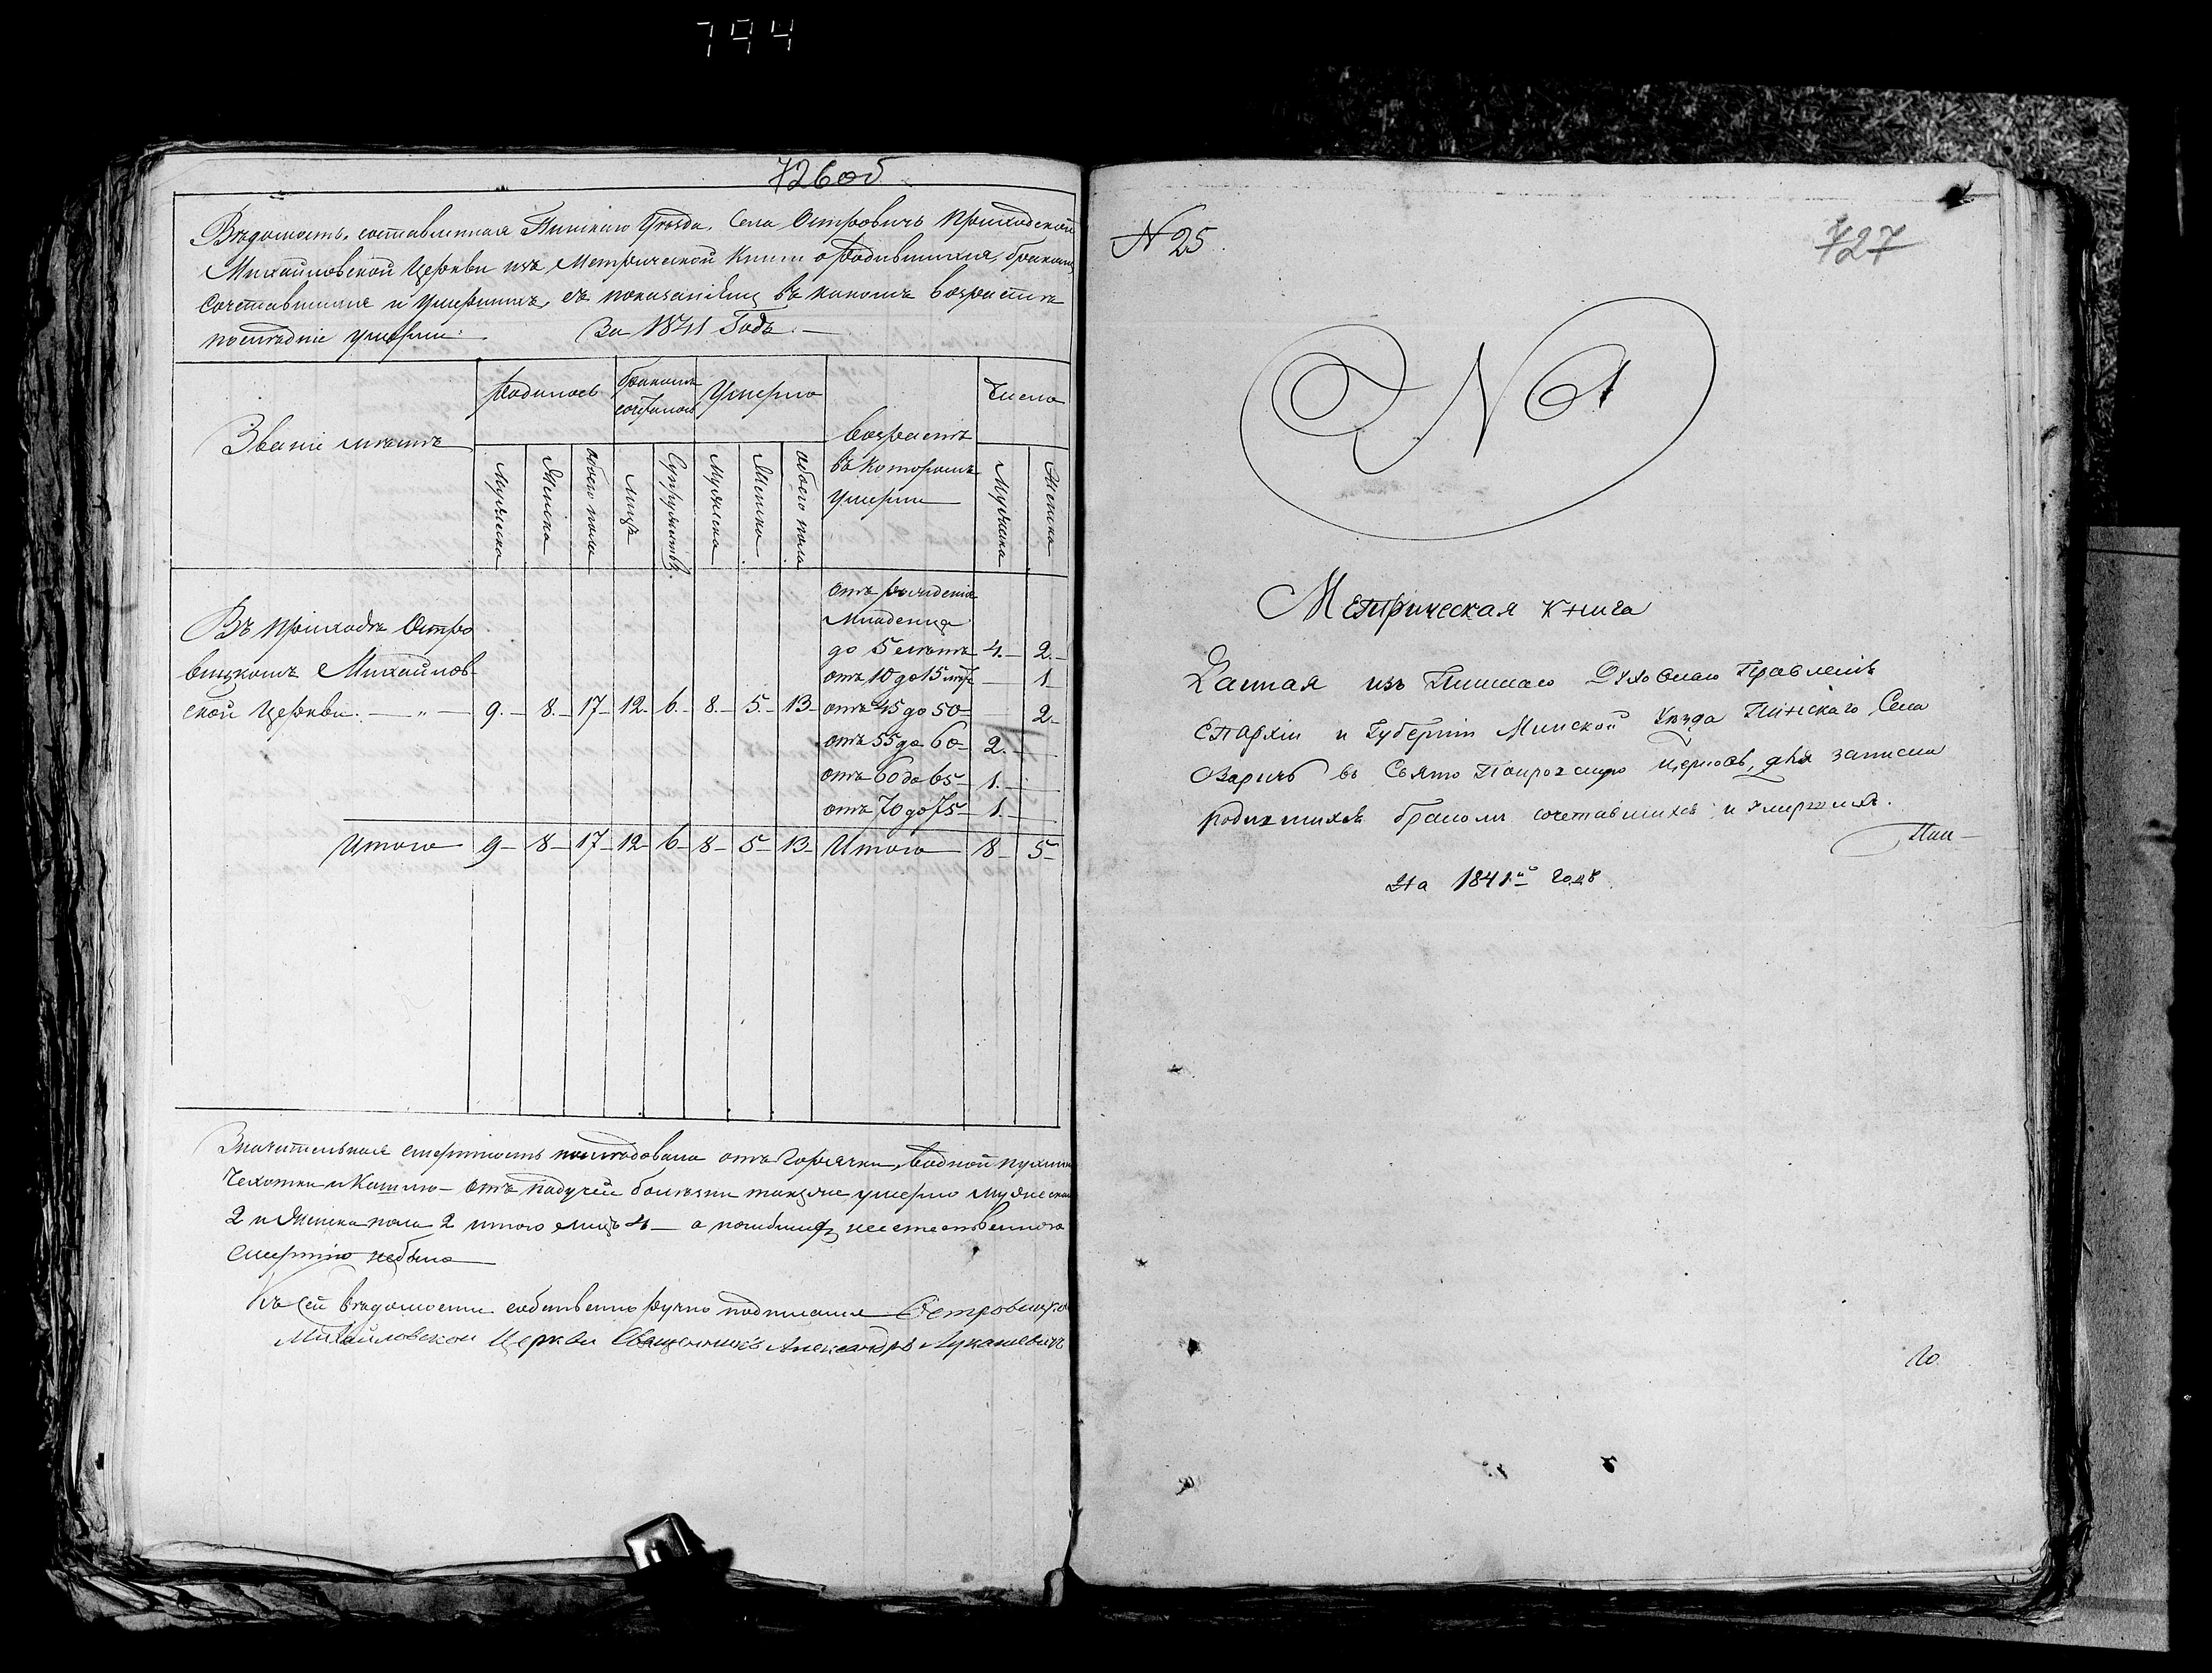 794
726об
Вѣдомость, составленная Пинскаго Уѣзда, Села Островичъ Приходской
Михайловской Церкви изъ Метрической Книги о Родившихся, бракомъ
сочетавшихся и Умершихъ, съ показаніемъ въ какомъ возрастѣ
послѣдніе умерли: За 1841 Годъ. —
Званіе мѣстъ
Родилось
бракомъ сочеталось
Умерло
Возрастъ въ которомъ умерли
Число
Мужеска
Женска
обоего пола
Лицъ
Супружествъ
Мужеска
Женска
обоего пола
Мужеска
Женска
Въ приходѣ Остро
вицкомъ Михайлов-
ской Церкви. — „ — 9. — 8. — 17 — 12. 6. — 8. — 5. — 13 —
отъ рожденія
Младенца
до 5 лѣтъ 4. — 2. —
отъ 10 до 15 лѣтъ — 1
отъ 45 до 50 — 2. —
отъ 55 до 60 — 2. —
отъ 60 до 65 — 1. —
отъ 70 до 75 — 1. —
Итого — 9 — 8 — 17 — 12 — 6 — 8 — 5 — 13 — Итого — 8 — 5 —
Значительная смертность послѣдовала отъ Горячки, Водной пухлины
Чехотки и Кашлю — отъ падучей болѣзни также умерло мужеска
2 и Женска пола 2 итого лицъ 4 — а погибшихъ неестественною
смертію небыло —
Къ сей вѣдомости собственно ручно подписался Островицкой
Михайловской Церкви Священникъ Александръ Лукашевичъ
N 25.
727
N 1
Метрическая книга
Данная изъ Пинскаго Духовнаго Правленія
Епархіи и Губерніи Минской Уѣзда Пинскаго Села
въ Свято Покровскую Церковь, для записки
родившихся бракомъ сочетавшихся и умершихъ.
На 1841й годъ.